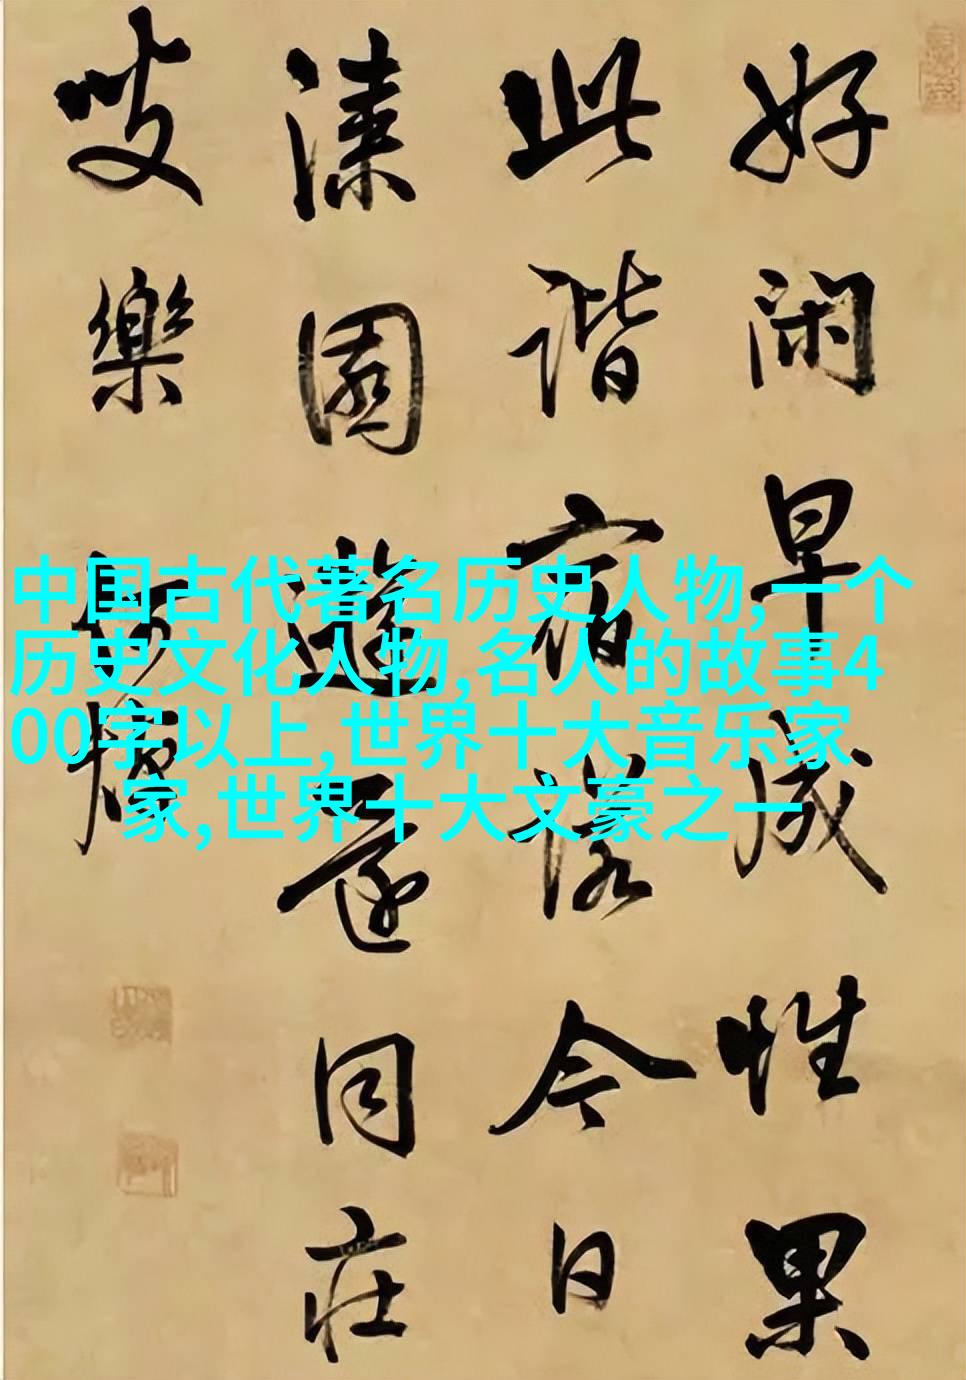 好閑早成性果
此諧宿諾今日
漆園遊還同庄
叟樂
中国古代著名历史人物,一个
历史文化人物,名人的故事4
00字以上,世界十大音乐家
家,世界十大文豪之一